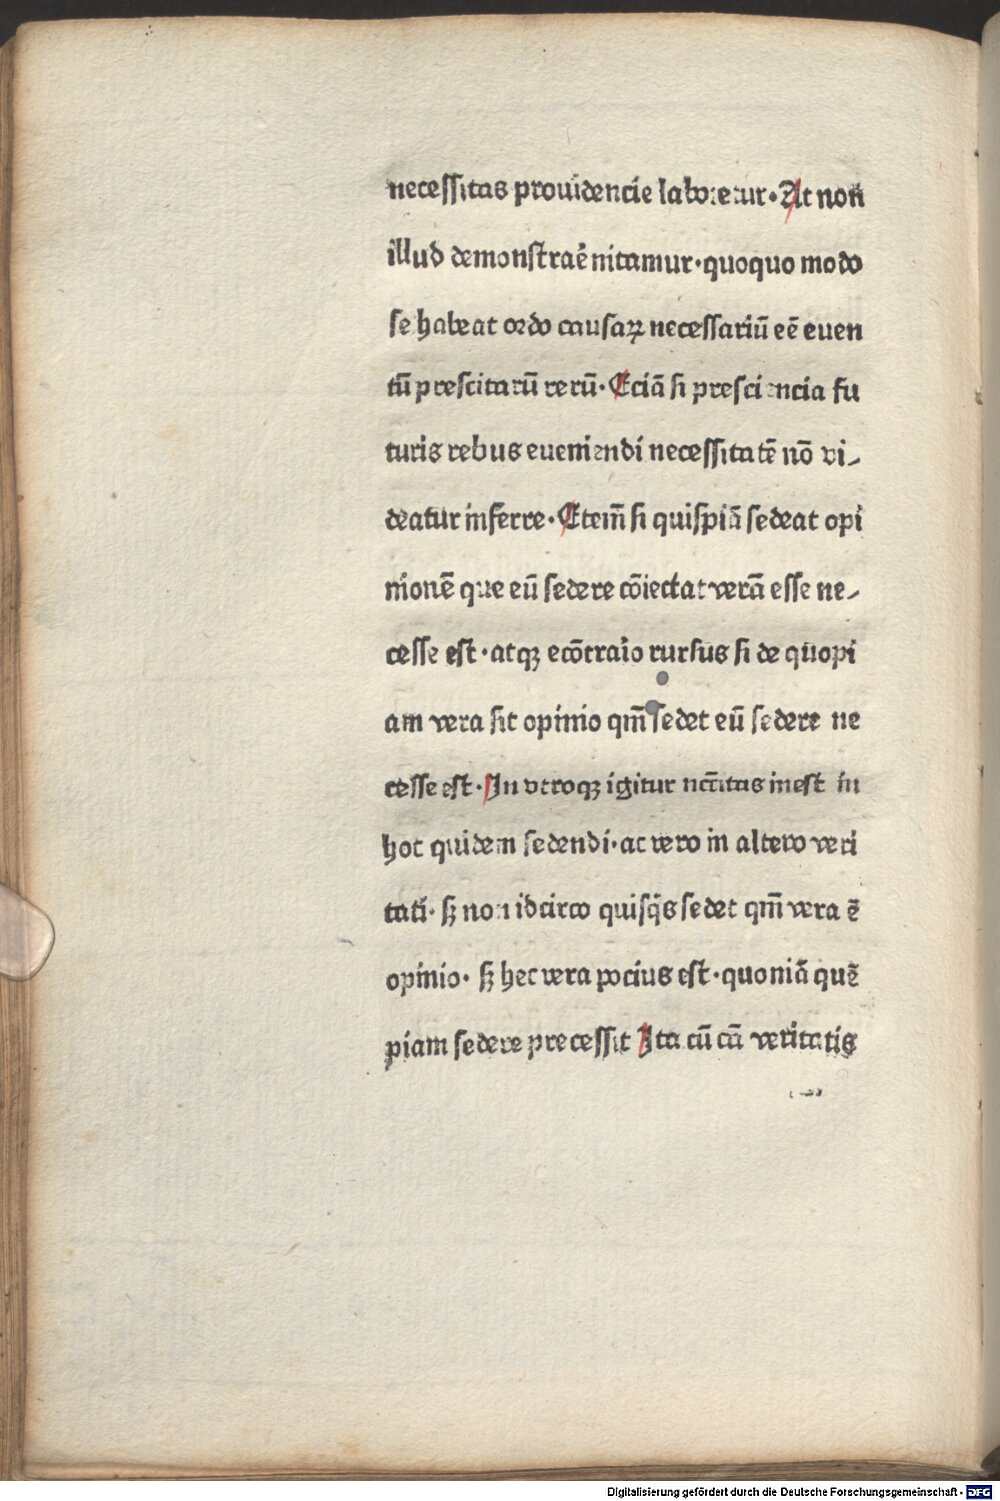 necessitas prouidencie laboretur · At non
illud demonstrae̅ nitamur · quoquo modo
se habeat ordo causaꝝ necessariu̅ ee̅ euen
tu̅ prescitaru̅ reru̅ · Ecia̅ si presciencia fu
turis rebus eueniendi necessitate̅ no̅ vi⸗
deatur inferre · Etem̅ si quispia̅ sedeat opi
nione̅ que eu̅ sedere co̅iectat vera̅ esse ne⸗
cesse est · atqꝫ eco̅traio rursus si de quopi
am vera sit opinio qm̅ sedet eu̅ sedere ne
cesse est · In vtroqꝫ igitur nc̅citas inest in
hoc quidem sedendi · at vero in altero veri
tati · sꝫ non idcirco quisq̇s sedet qm̅ vera e̅
opinio · sꝫ hec vera pocius est · quonia̅ que̅
piam sedere precessit Ita cu̅ ca̅ veritatis
Digitalisierung gefördert durch die Deutsche Forschungsgemeinschaft · DFG